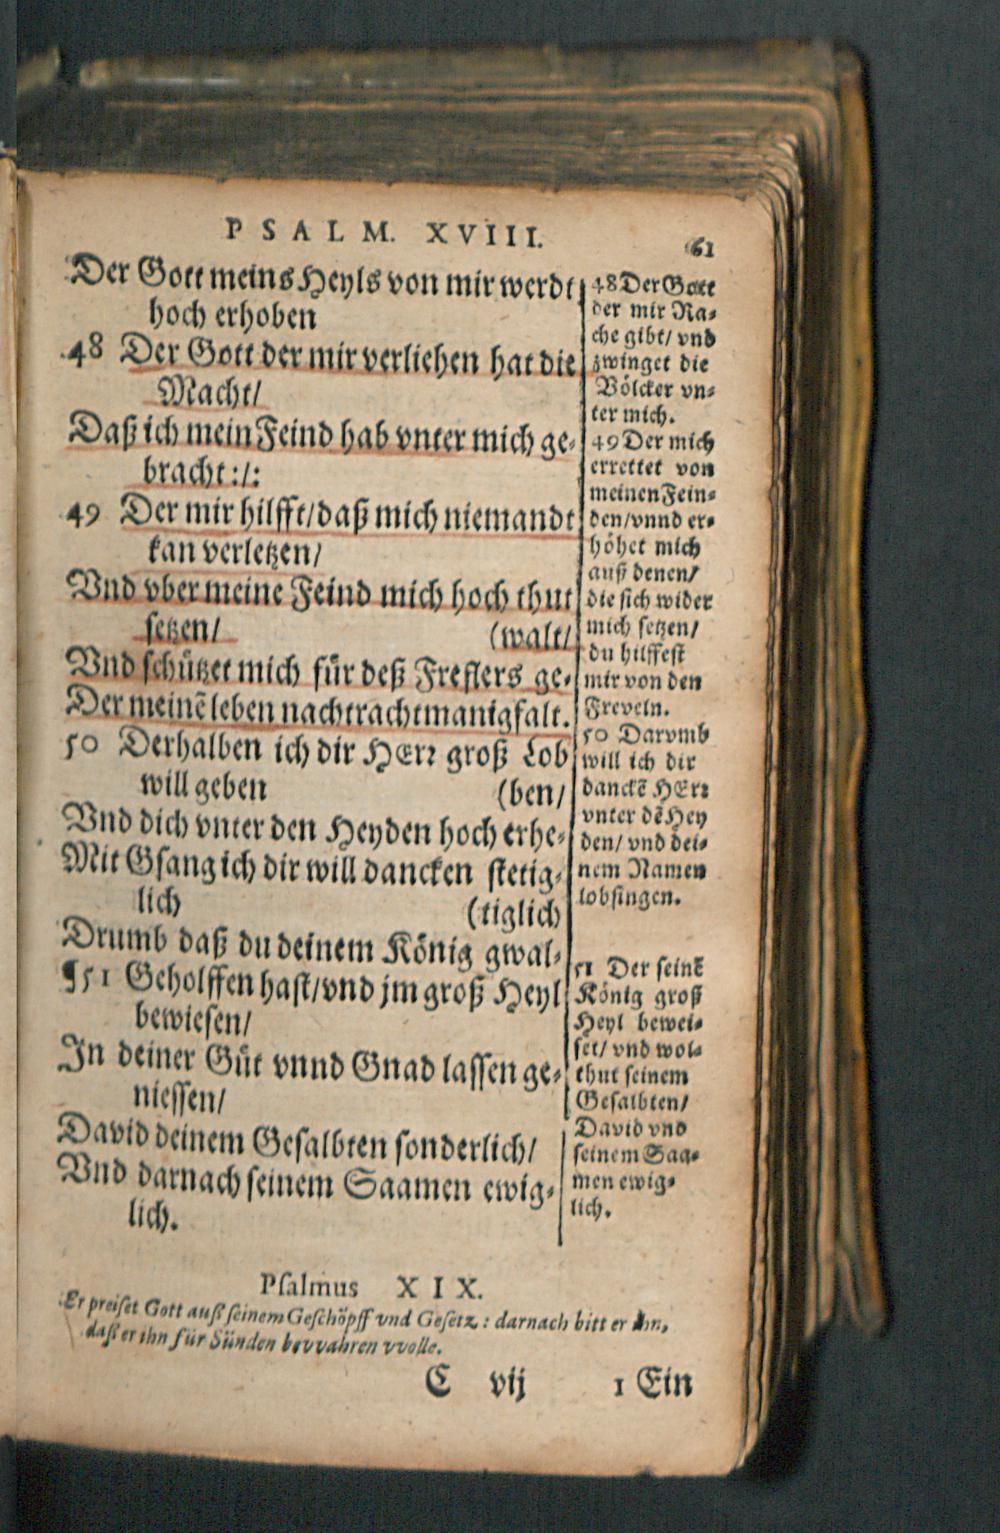 PSALM. XVIII.
61
Der Gott meins Heyls von mir werdt
hoch erhoben
48 Der Gott der mir verliehen hat die
Macht/
Daß ich mein Feind hab vnter mich ge-
bracht :/:
49 Der mir hilfft/daß mich niemandt
kan verletzen/
Vnd vber meine Feind mich hoch thut
setzen/ (walt/
Vnd schützet mich für deß Freflers ge-
Der meinẽ leben nachtracht manigfalt.
50 Derhalben ich dir HErr groß Lob
will geben (ben/
Vnd dich vnter den Heyden hoch erhe-
Mit Gsang ich dir will dancken stetig-
lich (tiglich
Drumb daß du deinem König gwal-
¶51 Geholffen hast/vnd jm groß Heyl
bewiesen/
In deiner Güt vnnd Gnad lassen ge-
niessen/
David deinem Gesalbten sonderlich/
Vnd darnach seinem Saamen ewig-
lich.
48 Der Gott
der mir Ra-
che gibt/ vnd
zwinget die
Völcker vn-
ter mich.
49 Der mich
errettet von
meinen Fein-
den/vnnd er-
höhet mich
auß denen/
die sich wider
mich setzen/
du hilffest
mir von den
Freveln.
50 Darumb
will ich dir
danckẽ HErr
vnter dẽ Hey
den/ vnd dei-
nem Namen
lobsingen.
51 Der seinẽ
König groß
Heyl bewei-
set/ vnd wol-
thut seinem
Gesalbten/
David vnd
seinem Saa-
men ewig-
lich.
Psalmus XIX.
Er preiset Gott auß seinem Geschöpff vnd Gesetz: darnach bitt er ihn,
daß er ihn für Sünden bevvahren vvolle.
C vij 1 Ein